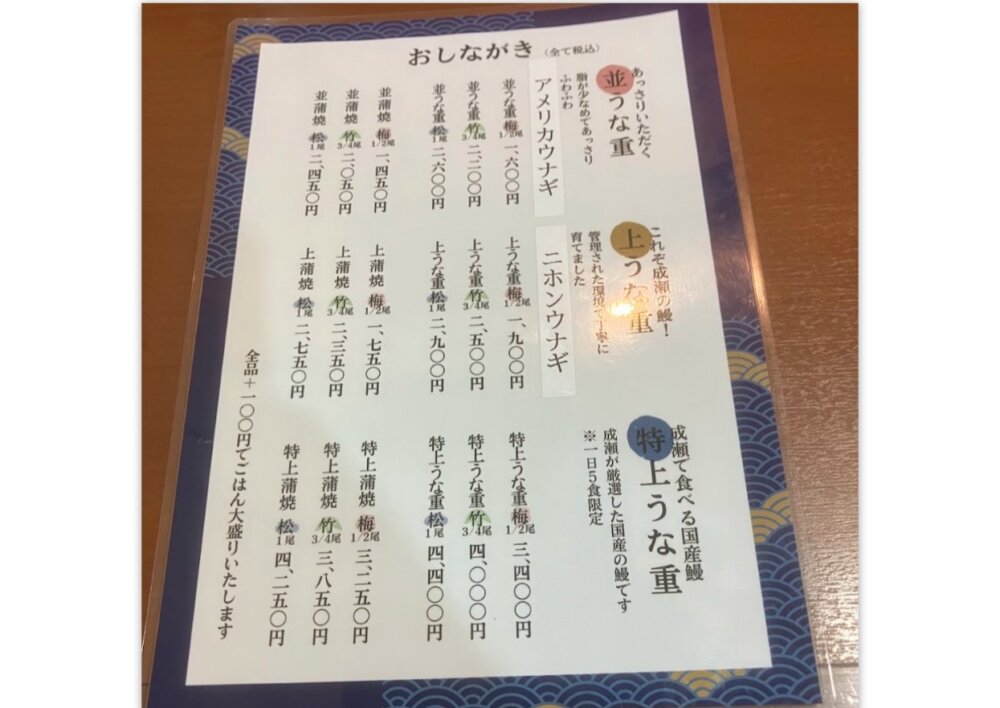 おしながき（全て税込）
あっさりいただく
並うな重
脂が少なめであっさり
ふわふわ
アメリカウナギ
並うな重 梅 1/2尾 一、六〇〇円
並うな重 竹 3/4尾 二、二〇〇円
並うな重 松 1尾 二、六〇〇円
並蒲焼 梅 1/2尾 一、四五〇円
並蒲焼 竹 3/4尾 二、〇五〇円
並蒲焼 松 1尾 二、四五〇円
これぞ成瀬の鰻！
上うな重
管理された環境で丁寧に
育てました
ニホンウナギ
上うな重 梅 1/2尾 一、九〇〇円
上うな重 竹 3/4尾 二、五〇〇円
上うな重 松 1尾 二、九〇〇円
上蒲焼 梅 1/2尾 一、七五〇円
上蒲焼 竹 3/4尾 二、三五〇円
上蒲焼 松 1尾 二、七五〇円
成瀬で食べる国産鰻
特上うな重
成瀬が厳選した国産の鰻です
※一日5食限定
特上うな重 梅 1/2尾 三、四〇〇円
特上うな重 竹 3/4尾 四、〇〇〇円
特上うな重 松 1尾 四、四〇〇円
特上蒲焼 梅 1/2尾 三、二五〇円
特上蒲焼 竹 3/4尾 三、八五〇円
特上蒲焼 松 1尾 四、二五〇円
全品＋一〇〇円でごはん大盛りいたします